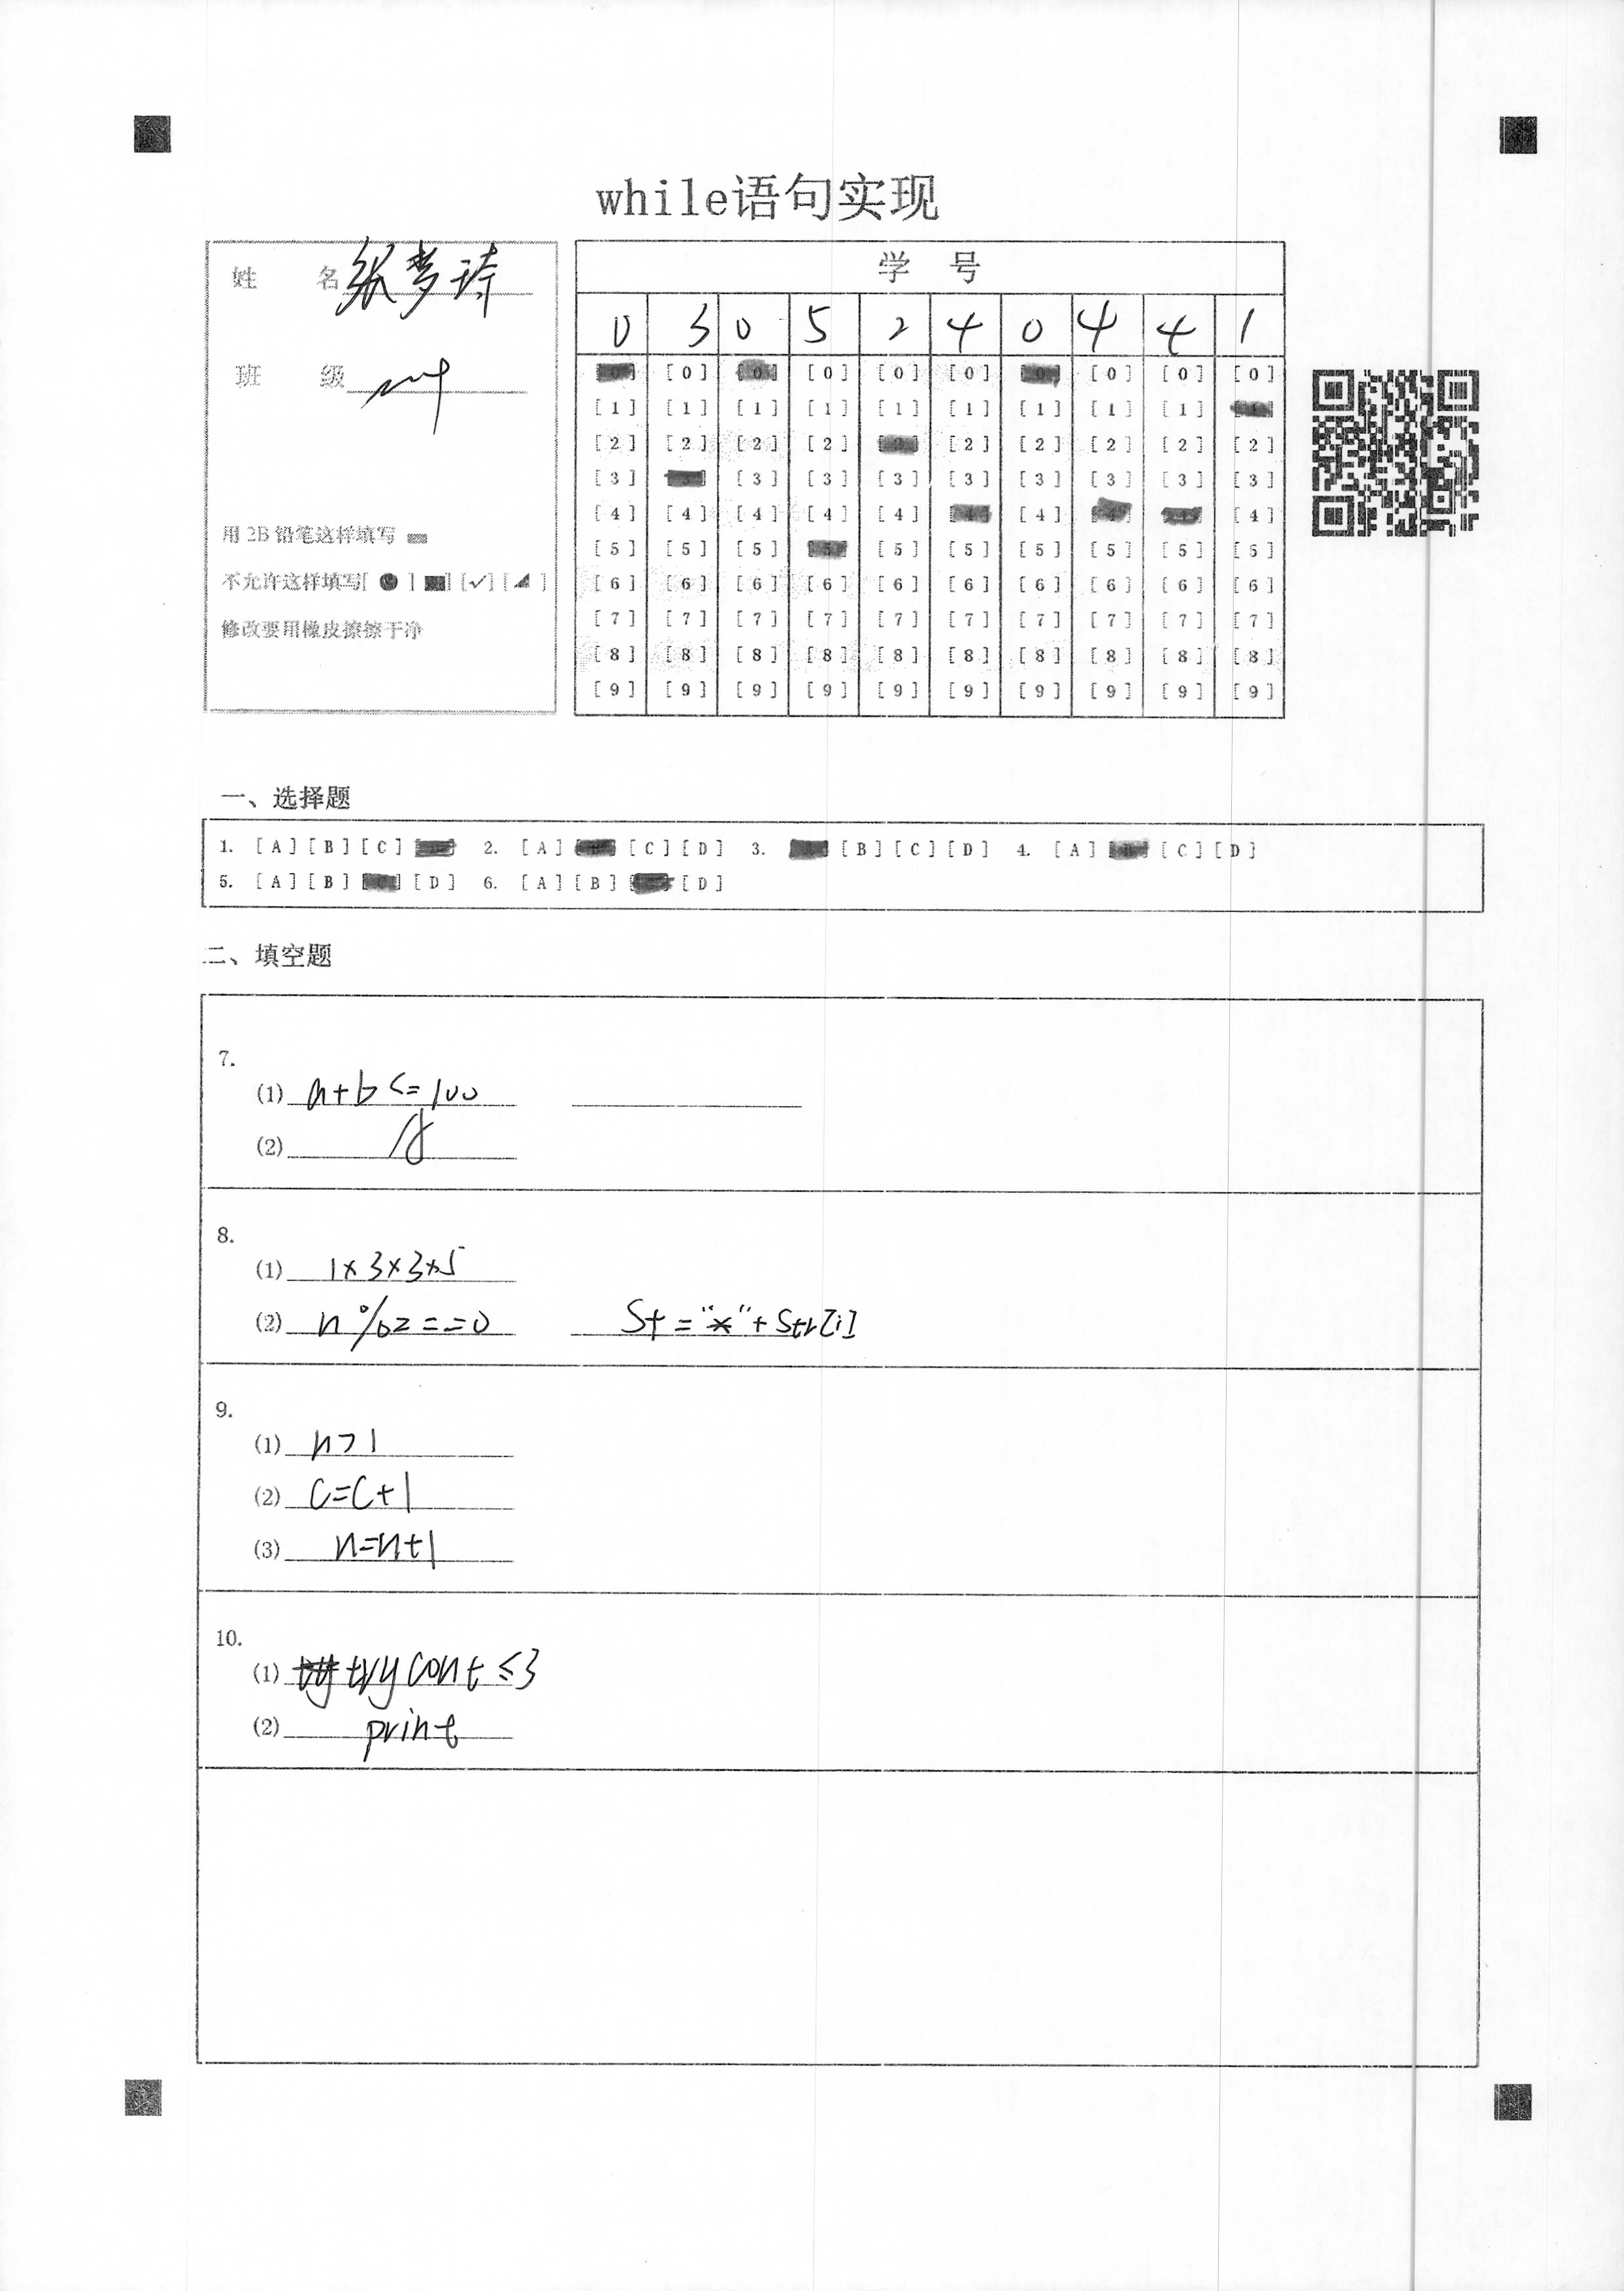 while语句实现
姓 名 张梦琦
班 级
用 2B 铅笔这样填写
不允许这样填写[ ● ] [■] [✓] [◢ ]
修改要用橡皮擦擦干净
学 号
0 3 0 5 2 4 0 4 4 1
[0] [0] [0] [0] [0] [0] [0] [0] [0] [0]
[1] [1] [1] [1] [1] [1] [1] [1] [1] [1]
[2] [2] [2] [2] [2] [2] [2] [2] [2] [2]
[3] [3] [3] [3] [3] [3] [3] [3] [3] [3]
[4] [4] [4] [4] [4] [4] [4] [4] [4] [4]
[5] [5] [5] [5] [5] [5] [5] [5] [5] [5]
[6] [6] [6] [6] [6] [6] [6] [6] [6] [6]
[7] [7] [7] [7] [7] [7] [7] [7] [7] [7]
[8] [8] [8] [8] [8] [8] [8] [8] [8] [8]
[9] [9] [9] [9] [9] [9] [9] [9] [9] [9]
一、选择题
1. [A] [B] [C] [D] 2. [A] [B] [C] [D] 3. [A] [B] [C] [D] 4. [A] [B] [C] [D]
5. [A] [B] [C] [D] 6. [A] [B] [C] [D]
二、填空题
7.
(1) a+b<=100
(2)
8.
(1) 1×3×3×5
(2) n%2==0 St="*"+Str[i]
9.
(1) n>1
(2) c=c+1
(3) n=n+1
10.
(1) trycont≤3
(2) print